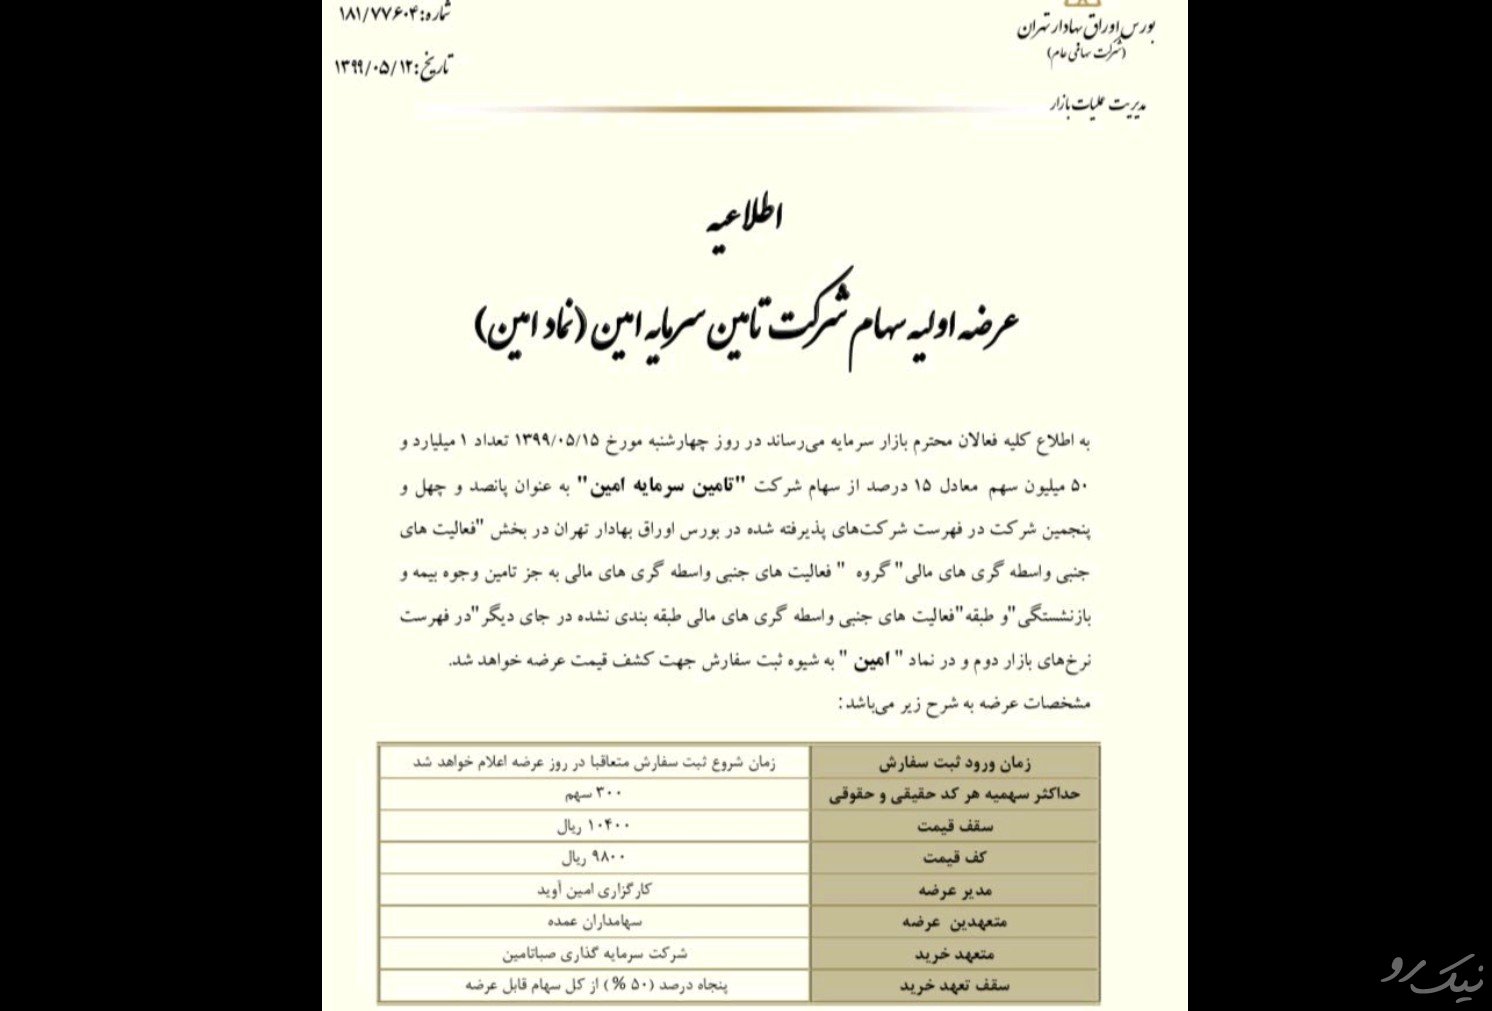 شماره: ۱۸۱/۷۷۶۰۴
بورس اوراق بهادار تهران
(شرکت سهامی عام)
تاریخ: ۱۳۹۹/۰۵/۱۲
مدیریت عملیات بازار
اطلاعیه
عرضه اولیه سهام شرکت تامین سرمایه امین (نماد امین)
به اطلاع کلیه فعالان محترم بازار سرمایه می‌رساند در روز چهارشنبه مورخ ۱۳۹۹/۰۵/۱۵ تعداد ۱ میلیارد و
۵۰ میلیون سهم معادل ۱۵ درصد از سهام شرکت "تامین سرمایه امین" به عنوان پانصد و چهل و
پنجمین شرکت در فهرست شرکت‌های پذیرفته شده در بورس اوراق بهادار تهران در بخش "فعالیت های
جنبی واسطه گری های مالی" گروه " فعالیت های جنبی واسطه گری های مالی به جز تامین وجوه بیمه و
بازنشستگی"و طبقه"فعالیت های جنبی واسطه گری های مالی طبقه بندی نشده در جای دیگر"در فهرست
نرخ‌های بازار دوم و در نماد " امین " به شیوه ثبت سفارش جهت کشف قیمت عرضه خواهد شد.
مشخصات عرضه به شرح زیر می‌باشد:
زمان ورود ثبت سفارش زمان شروع ثبت سفارش متعاقبا در روز عرضه اعلام خواهد شد
حداکثر سهمیه هر کد حقیقی و حقوقی ۳۰۰ سهم
سقف قیمت ۱۰۴۰۰ ریال
کف قیمت ۹۸۰۰ ریال
مدیر عرضه کارگزاری امین آوید
متعهدین عرضه سهامداران عمده
متعهد خرید شرکت سرمایه گذاری صباتامین
سقف تعهد خرید پنجاه درصد (۵۰ %) از کل سهام قابل عرضه
نیک رو